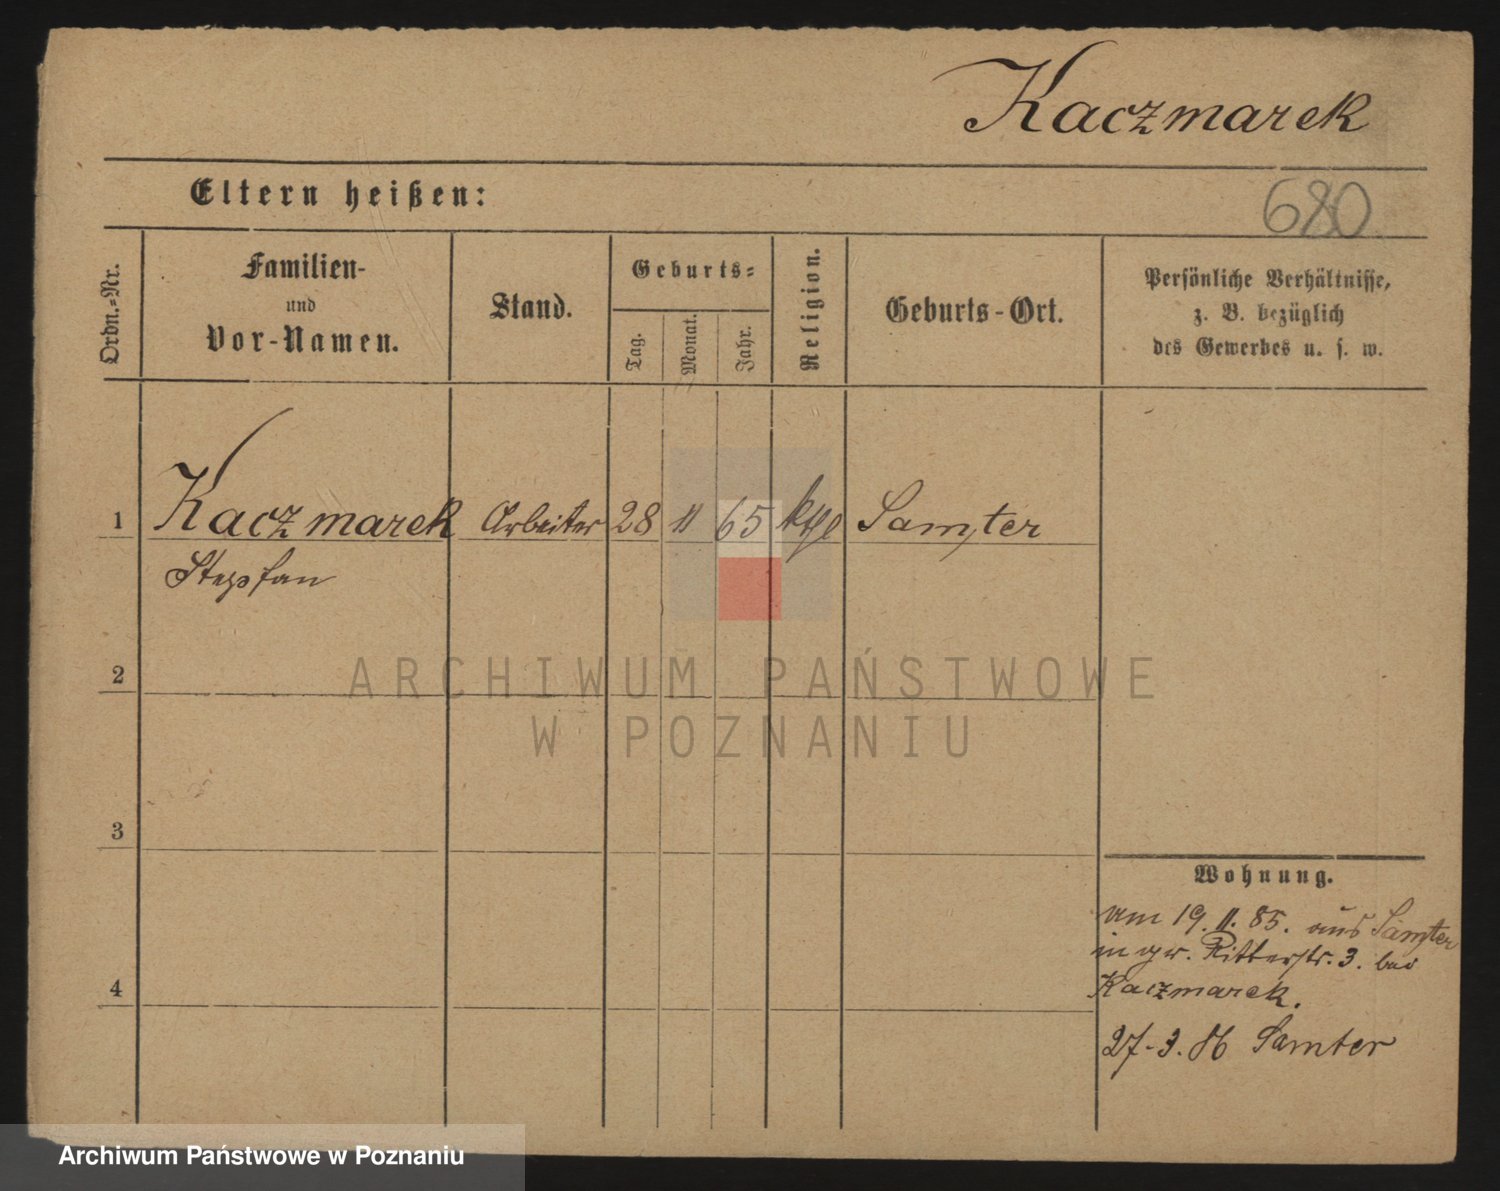 Kaczmarek
Eltern heißen:
680
Ordn.-Nr.
Familien-
und
Vor-Namen.
Stand.
Geburts-
Tag.
Monat.
Jahr.
Religion.
Geburts-Ort.
Persönliche Verhältnisse,
z. B. bezüglich
des Gewerbes u. s. w.
1 Kaczmarek Arbeiter 28 11 65 kthl Samter
Stephan
2
ARCHIWUM PAŃSTWOWE
W POZNANIU
3
Wohnung.
am 19. 11. 85. aus Samter
in gr. Ritterstr. 3. bei
Kaczmarek.
4
27-3. 86 Samter
Archiwum Państwowe w Poznaniu